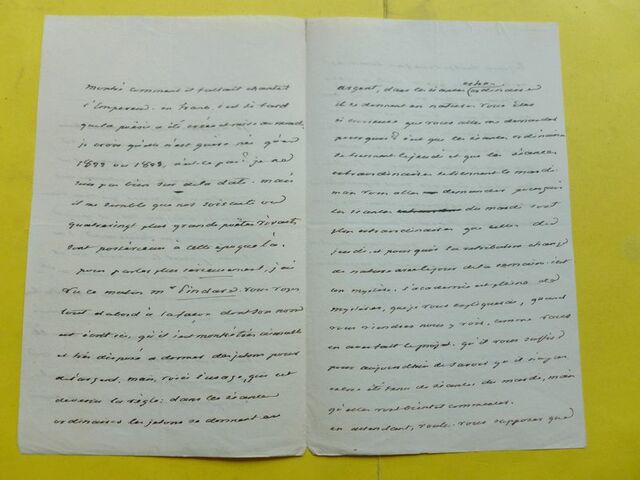 montré comment il fallait chanter
l'Empereur. en France, c'est si tard
que la poésie a été créée et mise au monde,
je crois qu'elle n'est guère née qu'en
1822 ou 1823, n'est-ce pas? je ne
suis pas bien sûr de la date. mais
il me semble que nos soixante ou
quatrevingt plus grands poètes vivants,
sont postérieurs à cette époque là.
pour parler plus sérieusement, j'ai
vu ce matin Mr Pindare. vous voyez
tout d'abord à la façon dont son nom
est écrit ici, qu'il s'est montré très aimable
et très disposé à donner des jetons pour
de l'argent. mais, voici l'usage, qui est
devenu la règle: dans les séances
ordinaires les jetons se donnent en
argent, dans les séances extraordinaires
ils se donnent en nature. vous êtes
si curieuse que vous allez me demander
pourquoi? c'est que les séances ordinaires
se tiennent le jeudi et que les séances
extraordinaires se tiennent le mardi.
mais vous allez demander pourquoi
les séances du mardi sont
plus extraordinaires que celles du
jeudi. et pourquoi la rétribution change
de nature avec le jour de la semaine. c'est
un mystère. l'académie est pleine de
mystères, que je vous expliquerai, quand
vous viendrez nous y voir, comme vous
en avez fait le projet. qu'il vous suffise
pour aujourd'hui de savoir qu'il n'a
encore été tenu de séances du mardi, mais
qu'elles vont bientôt commencer.
en attendant, voulez-vous supposer que